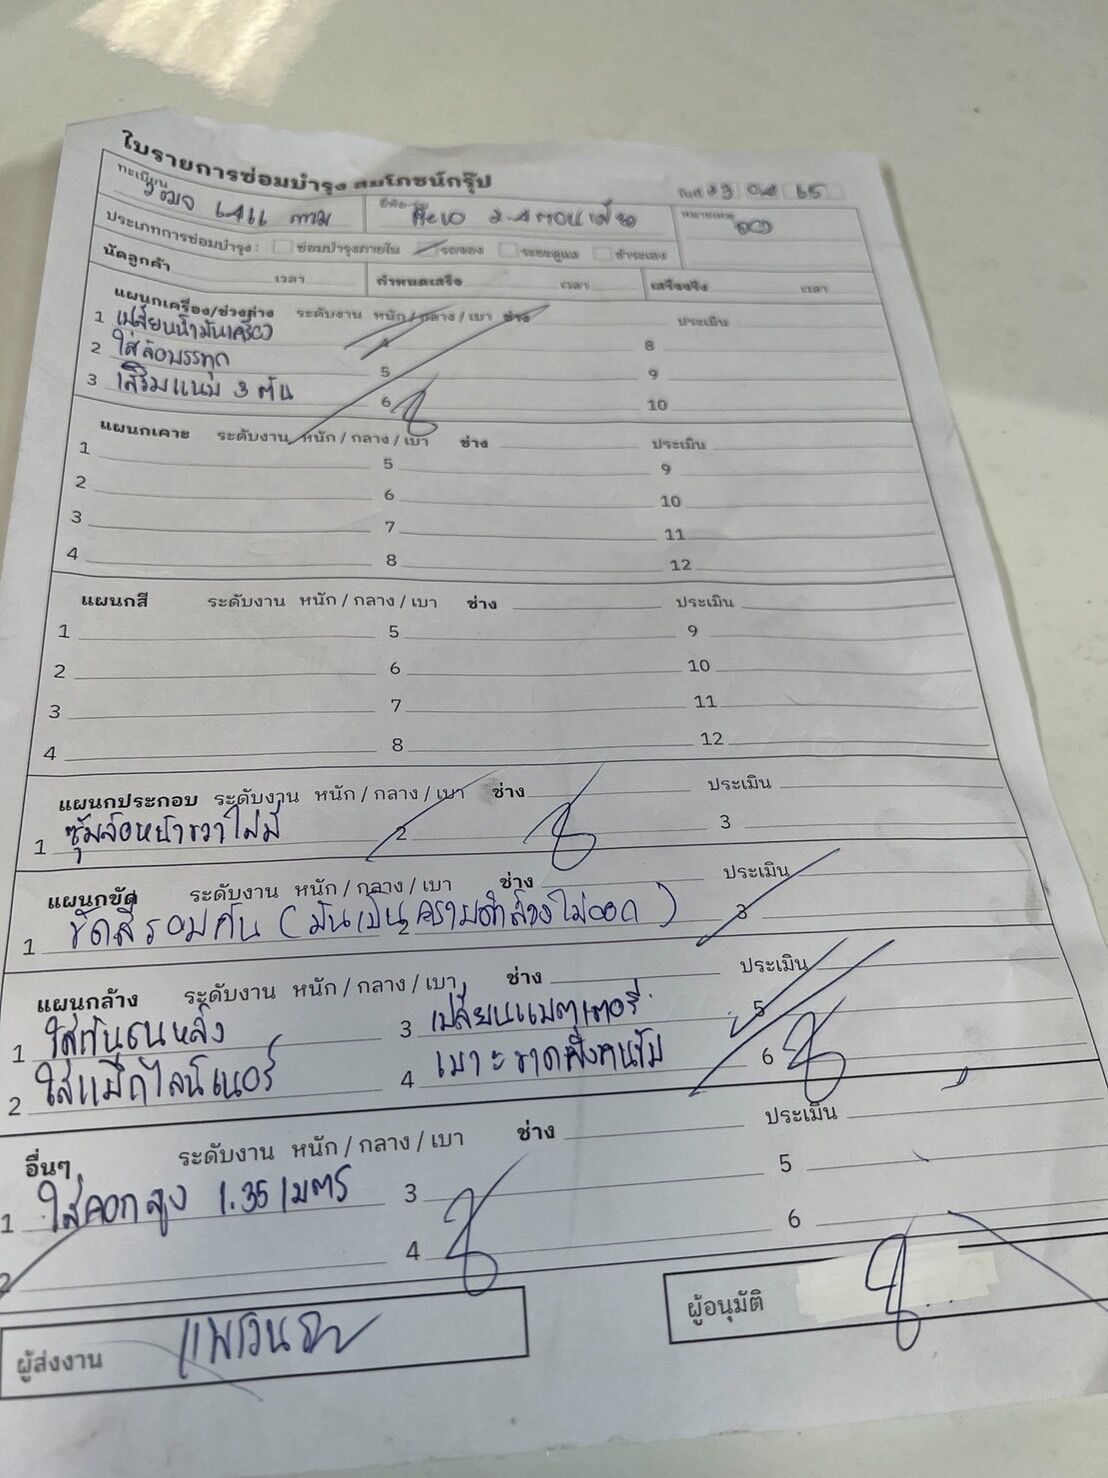 ใบรายการซ่อมบำรุง สมโภชน์กรุ๊ป
ทะเบียน
ประเภทการซ่อมบำรุง : ซ่อมบำรุงภายใน รถจอง ระยะดูแล ชำระเอง
หมายเหตุ
นัดลูกค้า เวลา กำหนดเสร็จ เวลา เสร็จจริง เวลา
แผนกเครื่อง/ช่วงล่าง ระดับงาน หนัก / กลาง / เบา ช่าง ประเมิน
1 เปลี่ยนน้ำมันเครื่อง 4 8
2 ใส่ล้อบรรทุก 5 9
3 เสริมแหนบ 3 ตัน 6 10
แผนกเคาะ ระดับงาน หนัก / กลาง / เบา ช่าง ประเมิน
1 5 9
2 6 10
3 7 11
4 8 12
แผนกสี ระดับงาน หนัก / กลาง / เบา ช่าง ประเมิน
1 5 9
2 6 10
3 7 11
4 8 12
แผนกประกอบ ระดับงาน หนัก / กลาง / เบา ช่าง ประเมิน
1 ซุ้มล้อหน้าขวาไม่มี 2 3
แผนกขัด ระดับงาน หนัก / กลาง / เบา ช่าง ประเมิน
1 ขัดสีรอบคัน (มันเป็นคราบดำล้างไม่ออก) 2 3
แผนกล้าง ระดับงาน หนัก / กลาง / เบา ช่าง ประเมิน
1 ใส่กันชนหลัง 3 เปลี่ยนแบตเตอรี่ 5
2 ใส่แม็กไลน์เนอร์ 4 เบาะขาดฝั่งคนขับ 6
อื่นๆ ระดับงาน หนัก / กลาง / เบา ช่าง ประเมิน
1 ใส่คอกสูง 1.35 เมตร 3 5
2 4 6
ผู้ส่งงาน
ผู้อนุมัติ